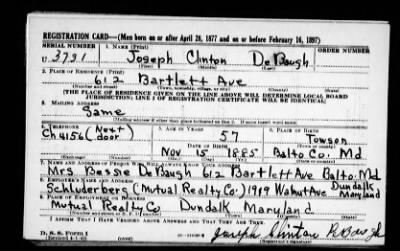 REGISTRATION CARD—(Men born on or after April 28, 1877 and on or before February 16, 1897)
SERIAL NUMBER 1. NAME (Print)
U 3791 Joseph Clinton DeBaugh
(First) (Middle) (Last)
2. PLACE OF RESIDENCE (Print)
612 Bartlett Ave
(Number and street) (Town, township, village, or city) (County) (State)
[THE PLACE OF RESIDENCE GIVEN ON THE LINE ABOVE WILL DETERMINE LOCAL BOARD
JURISDICTION; LINE 2 OF REGISTRATION CERTIFICATE WILL BE IDENTICAL]
3. MAILING ADDRESS
Same
(Mailing address if other than place indicated on line 2. If same insert word same)
4. TELEPHONE 5. AGE IN YEARS 6. PLACE OF BIRTH
Ch 4156 (Next door) 57 Towson
DATE OF BIRTH (Town or county)
Nov 15 1885 Balto Co. Md
(Exchange) (Number) (Mo.) (Day) (Yr.) (State or country)
7. NAME AND ADDRESS OF PERSON WHO WILL ALWAYS KNOW YOUR ADDRESS
Mrs Bessie DeBaugh 612 Bartlett Ave Balto. Md
8. EMPLOYER'S NAME AND ADDRESS
Schluderberg (Mutual Realty Co.) 1919 Walnut Ave Dundalk Maryland
9. PLACE OF EMPLOYMENT OR BUSINESS
Mutual Realty Co Dundalk Maryland
(Number and street or R. F. D. number) (Town) (County) (State)
I AFFIRM THAT I HAVE VERIFIED ABOVE ANSWERS AND THAT THEY ARE TRUE.
D. S. S. Form 1 Joseph Clinton DeBaugh